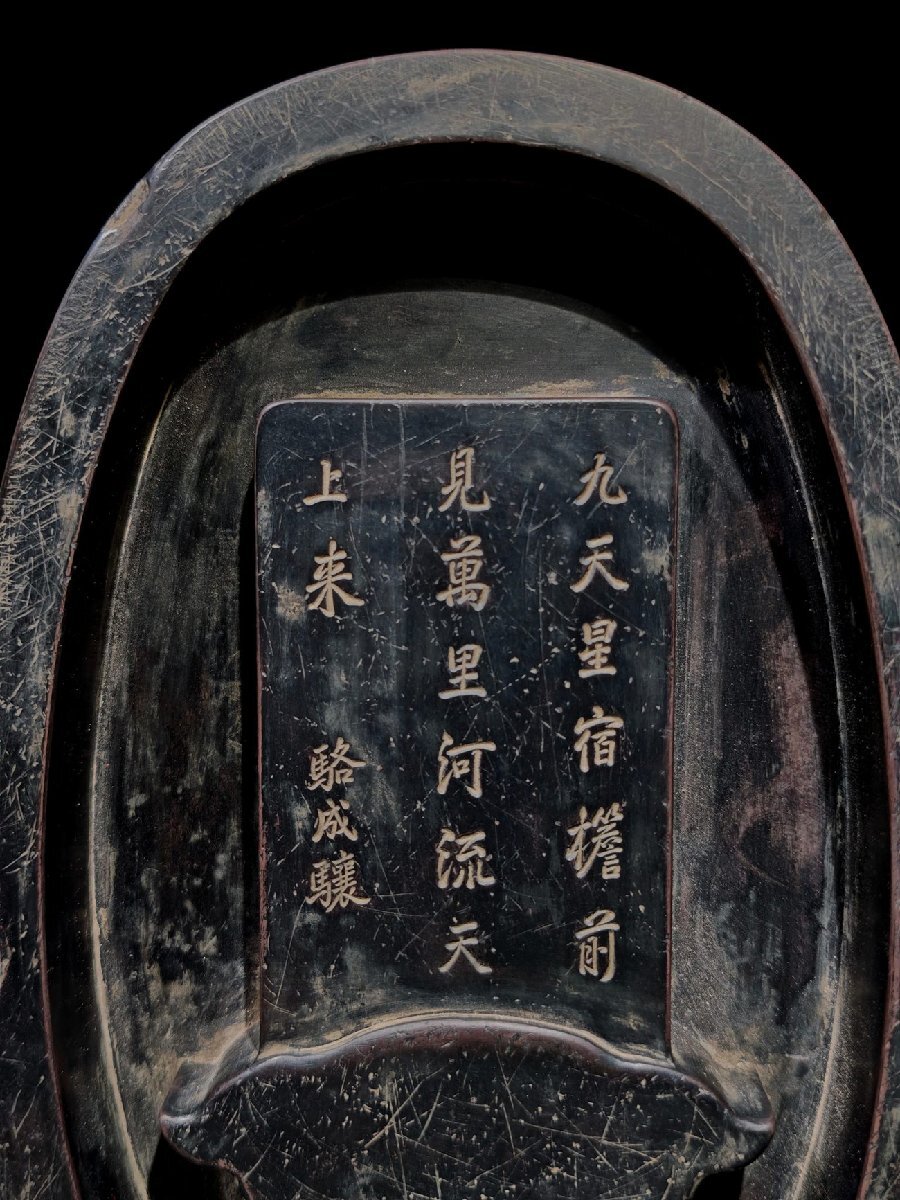 九天星宿檐前
見萬里河流天
上来
駱成驤